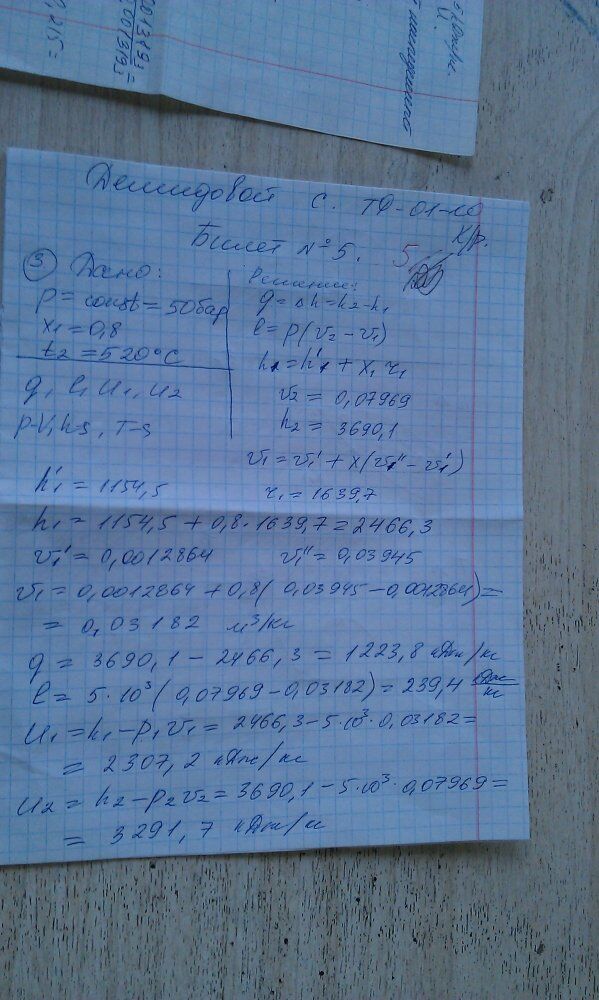 Демидовой С. ТФ-01-10
х/р.
Билет №5. 5
③ Дано:
p = const = 50 бар
x₁ = 0,8
t₂ = 520°C
q, l, u₁, u₂
p-v, h-s, T-s
Решение:
q = Δh = h₂ - h₁
l = p(v₂ - v₁)
h₁ = h₁' + x₁ r₁
v₂ = 0,07969
h₂ = 3690,1
v₁ = v₁' + x(v₁'' - v₁')
h₁' = 1154,5 r₁ = 1639,7
h₁ = 1154,5 + 0,8 · 1639,7 = 2466,3
v₁' = 0,0012864 v₁'' = 0,03945
v₁ = 0,0012864 + 0,8(0,03945 - 0,0012864) =
= 0,03182 м³/кг
q = 3690,1 - 2466,3 = 1223,8 кДж/кг
l = 5·10³(0,07969 - 0,03182) = 239,4 кДж/кг
u₁ = h₁ - p₁v₁ = 2466,3 - 5·10³·0,03182 =
= 2307,2 кДж/кг
u₂ = h₂ - p₂v₂ = 3690,1 - 5·10³·0,07969 =
= 3291,7 кДж/кг